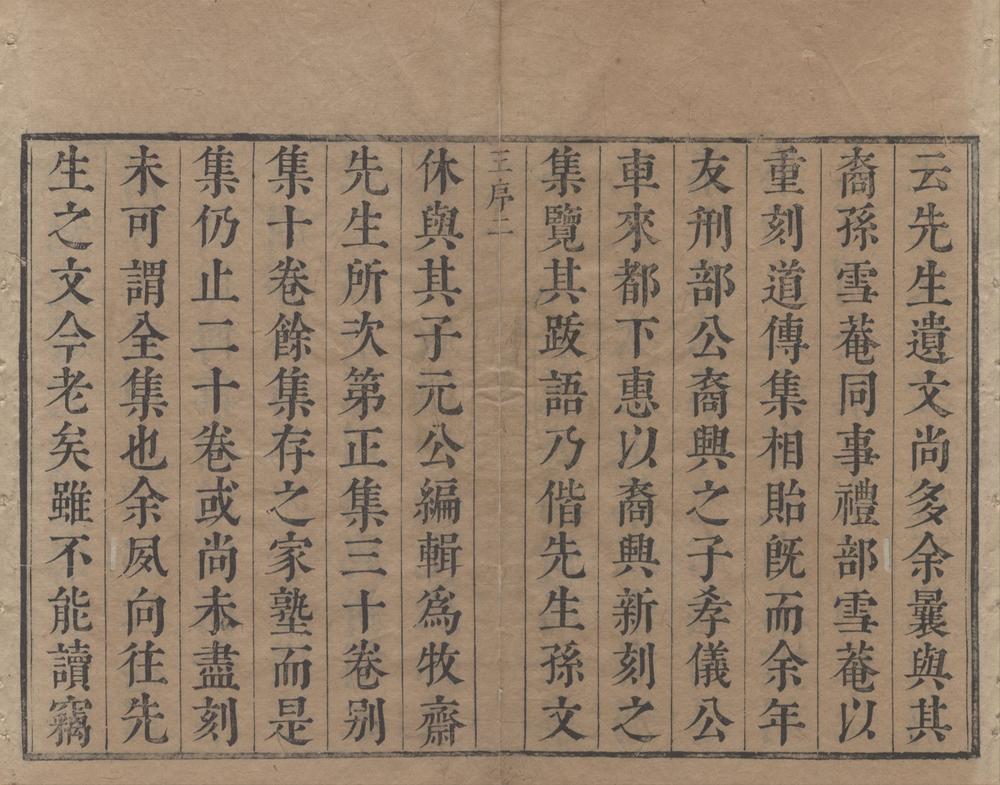 云先生遺文尚多余曩與其
裔孫雪菴同事禮部雪菴以
重刻道傳集相貽旣而余年
友刑部公裔興之子孝儀公
車來都下惠以裔興新刻之
集覽其跋語乃偕先生孫文
王序二
休與其子元公編輯爲牧齋
先生所次第正集三十卷別
集十卷餘集存之家塾而是
集仍止二十卷或尚未盡刻
未可謂全集也余夙向往先
生之文今老矣雖不能讀竊